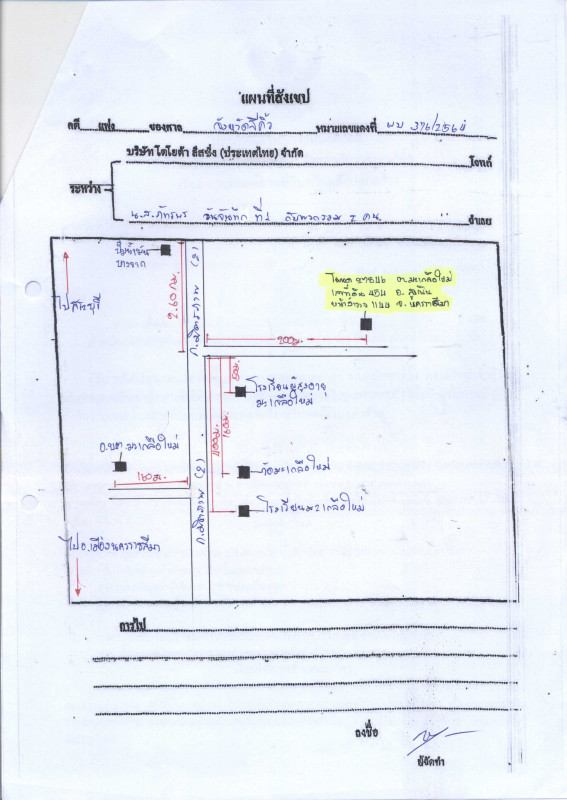 แผนที่สังเขป
คดี แพ่ง ของศาล จังหวัดสีคิ้ว หมายเลขแดงที่ ผบ 376/2564
บริษัท โตโยต้า ลีสซิ่ง (ประเทศไทย) จำกัด โจทก์
ระหว่าง
น.ส.ภัทรพร ที่ 1 กับพวกรวม 2 คน จำเลย
ปั๊มน้ำมัน
บางจาก
ไปสระบุรี
2.60 กม.
ถ.มิตรภาพ (2)
โฉนด 27846 ต.มะเกลือใหม่
เลขที่ดิน 454 อ.สูงเนิน
หน้าสำรวจ 1144 จ.นครราชสีมา
200ม.
50ม.
โรงเรียนผู้สูงอายุ
มะเกลือใหม่
160ม.
400ม.
อ.บต.มะเกลือใหม่
160ม.
วัดมะเกลือใหม่
ถ.มิตรภาพ (2)
โรงเรียนมะเกลือใหม่
ไป อ.เมืองนครราชสีมา
การไป
ลงชื่อ
ผู้จัดทำ